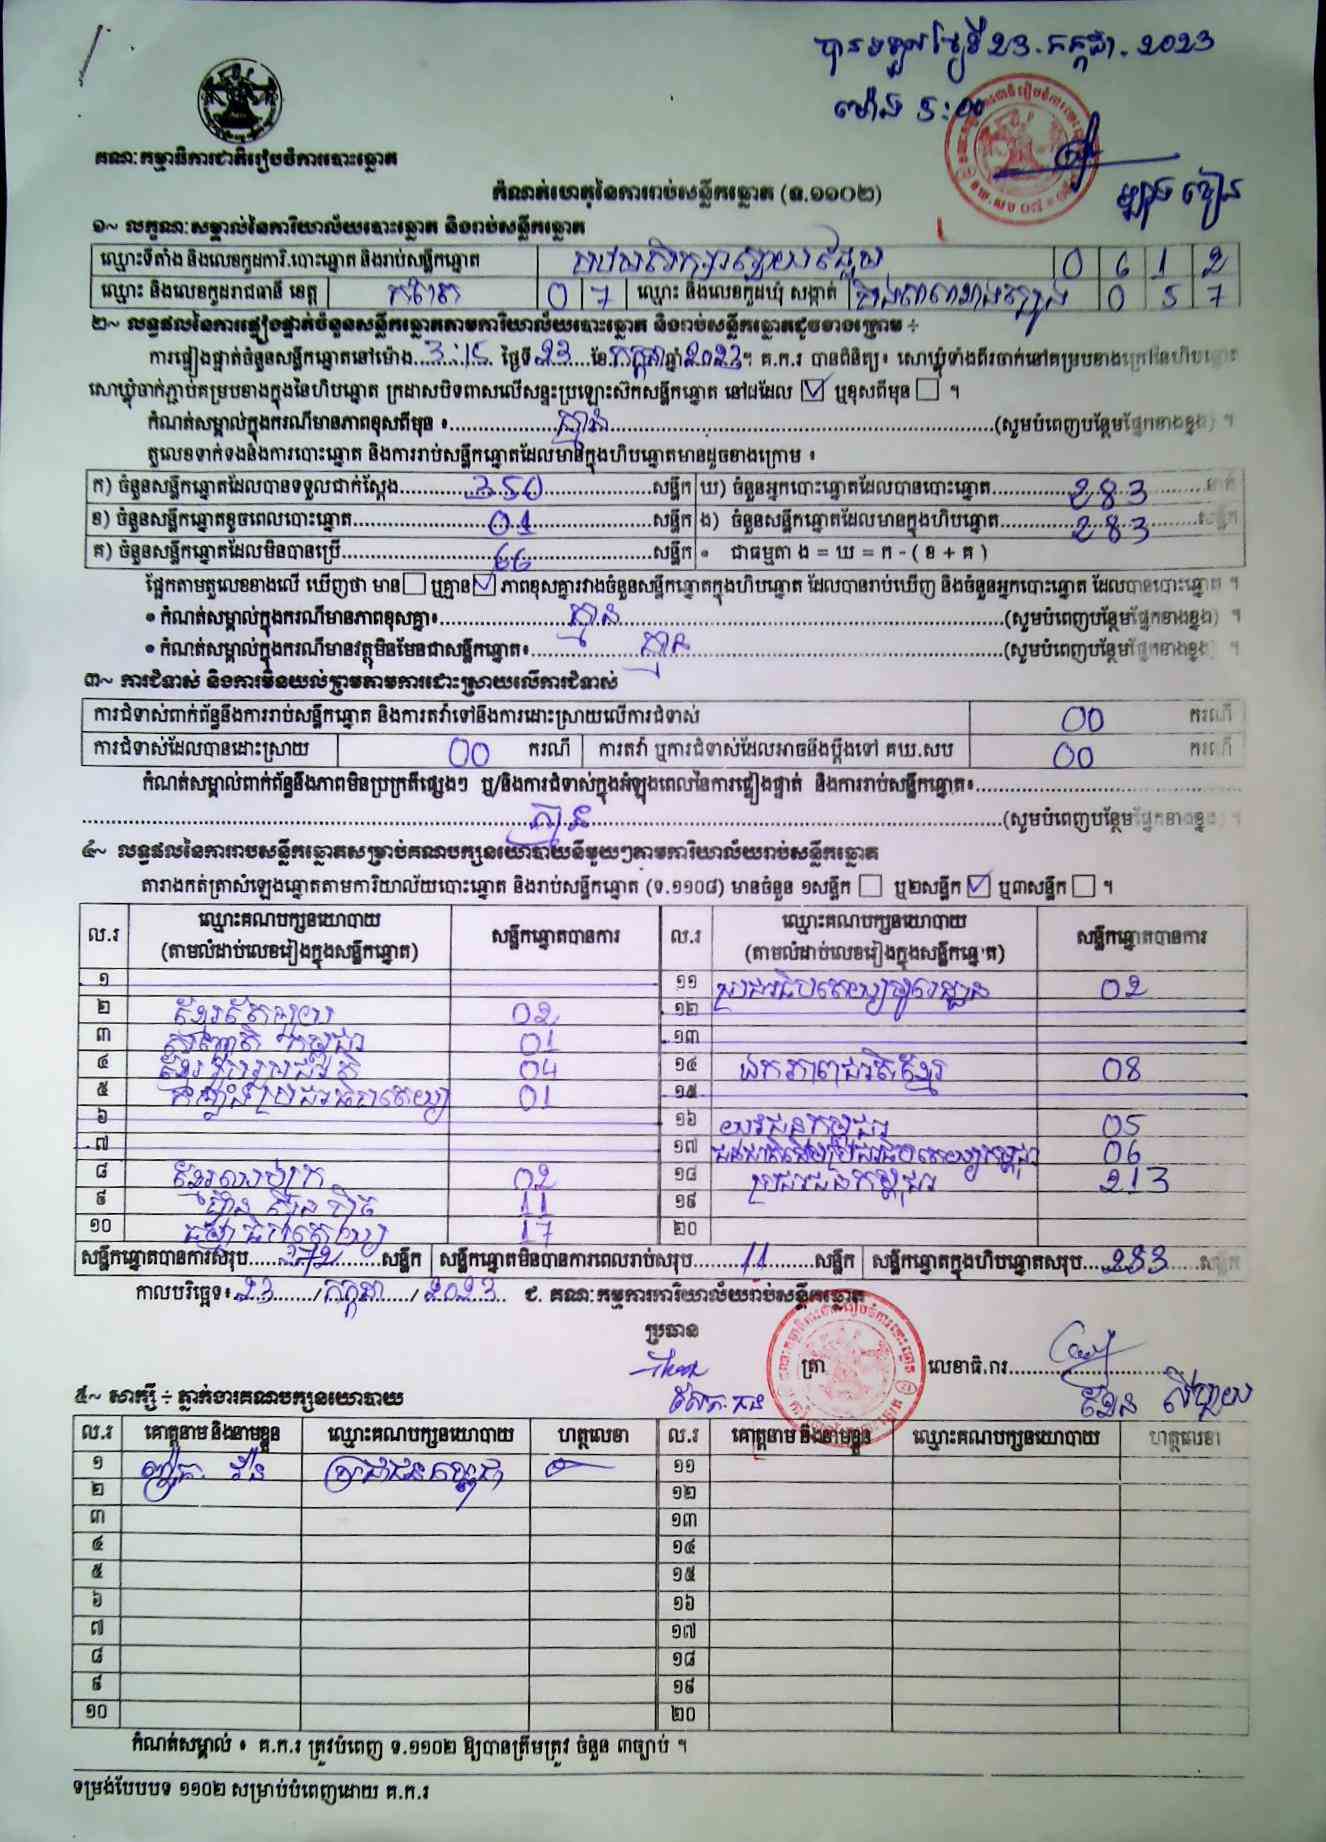 បានទទួលថ្ងៃទី 23. កក្កដា. 2023
ម៉ោង 5:00
គណៈកម្មាធិការជាតិរៀបចំការបោះឆ្នោត
កំណត់ហេតុនៃការរាប់សន្លឹកឆ្នោត (ទ.១១០២)
១~ លក្ខណៈសម្គាល់នៃការិយាល័យបោះឆ្នោត និងរាប់សន្លឹកឆ្នោត
ឈ្មោះទីតាំង និងលេខកូដការិ.បោះឆ្នោត និងរាប់សន្លឹកឆ្នោត 0 6 1 2
ឈ្មោះ និងលេខកូដរាជធានី ខេត្ត កំពត 0 7 ឈ្មោះ និងលេខកូដឃុំ សង្កាត់ 0 5 7
២~ លទ្ធផលនៃការផ្ទៀងផ្ទាត់ចំនួនសន្លឹកឆ្នោតតាមការិយាល័យបោះឆ្នោត និងរាប់សន្លឹកឆ្នោតដូចខាងក្រោម ÷
ការផ្ទៀងផ្ទាត់ចំនួនសន្លឹកឆ្នោតនៅម៉ោង 3:15 ថ្ងៃទី 23 ខែ កក្កដា ឆ្នាំ 2023 ។ គ.ក.រ បានពិនិត្យ៖ សោឃ្លុំទាំងពីរចាក់នៅគម្របខាងក្រៅនៃហិបឆ្នោត
សោឃ្លុំចាក់ភ្ជាប់គម្របខាងក្នុងនៃហិបឆ្នោត ក្រដាសបិទពាសលើសន្ទះប្រឡោះស៊កសន្លឹកឆ្នោត នៅដដែល ☑ ឬខុសពីមុន ☐ ។
កំណត់សម្គាល់ក្នុងករណីមានភាពខុសពីមុន ៖ គ្មាន (សូមបំពេញបន្ថែមផ្នែកខាងខ្នង) ។
តួលេខទាក់ទងនឹងការបោះឆ្នោត និងការរាប់សន្លឹកឆ្នោតដែលមានក្នុងហិបឆ្នោតមានដូចខាងក្រោម ៖
ក) ចំនួនសន្លឹកឆ្នោតដែលបានទទួលជាក់ស្តែង 350 សន្លឹក ឃ) ចំនួនអ្នកបោះឆ្នោតដែលបានបោះឆ្នោត 283 នាក់
ខ) ចំនួនសន្លឹកឆ្នោតខូចពេលបោះឆ្នោត 01 សន្លឹក ង) ចំនួនសន្លឹកឆ្នោតដែលមានក្នុងហិបឆ្នោត 283 សន្លឹក
គ) ចំនួនសន្លឹកឆ្នោតដែលមិនបានប្រើ 66 សន្លឹក ៖ ជាធម្មតា ង = ឃ = ក - ( ខ + គ )
ផ្អែកតាមតួលេខខាងលើ ឃើញថា មាន ☐ ឬគ្មាន ☑ ភាពខុសគ្នារវាងចំនួនសន្លឹកឆ្នោតក្នុងហិបឆ្នោត ដែលបានរាប់ឃើញ និងចំនួនអ្នកបោះឆ្នោត ដែលបានបោះឆ្នោត ។
• កំណត់សម្គាល់ក្នុងករណីមានភាពខុសគ្នា៖ គ្មាន (សូមបំពេញបន្ថែមផ្នែកខាងខ្នង) ។
• កំណត់សម្គាល់ក្នុងករណីមានវត្ថុមិនមែនជាសន្លឹកឆ្នោត៖ គ្មាន (សូមបំពេញបន្ថែមផ្នែកខាងខ្នង) ។
៣~ ការជំទាស់ និងការមិនយល់ព្រមតាមការដោះស្រាយលើការជំទាស់
ការជំទាស់ពាក់ព័ន្ធនឹងការរាប់សន្លឹកឆ្នោត និងការតវ៉ាទៅនឹងការដោះស្រាយលើការជំទាស់ 00 ករណី
ការជំទាស់ដែលបានដោះស្រាយ 00 ករណី ការតវ៉ា ឬការជំទាស់ដែលអាចនឹងប្តឹងទៅ គឃ.សប 00 ករណី
កំណត់សម្គាល់ពាក់ព័ន្ធនឹងភាពមិនប្រក្រតីផ្សេងៗ ឬ/និងការជំទាស់ក្នុងអំឡុងពេលនៃការផ្ទៀងផ្ទាត់ និងការរាប់សន្លឹកឆ្នោត៖
គ្មាន (សូមបំពេញបន្ថែមផ្នែកខាងខ្នង) ។
៤~ លទ្ធផលនៃការរាប់សន្លឹកឆ្នោតសម្រាប់គណបក្សនយោបាយនីមួយៗតាមការិយាល័យរាប់សន្លឹកឆ្នោត
តារាងកត់ត្រាសំឡេងឆ្នោតតាមការិយាល័យបោះឆ្នោត និងរាប់សន្លឹកឆ្នោត (ទ.១១០៨) មានចំនួន ១សន្លឹក ☐ ឬ២សន្លឹក ☑ ឬ៣សន្លឹក ☐ ។
ល.រ ឈ្មោះគណបក្សនយោបាយ (តាមលំដាប់លេខរៀងក្នុងសន្លឹកឆ្នោត) សន្លឹកឆ្នោតបានការ ល.រ ឈ្មោះគណបក្សនយោបាយ (តាមលំដាប់លេខរៀងក្នុងសន្លឹកឆ្នោត) សន្លឹកឆ្នោតបានការ
១ ១១ ប្រជាធិបតេយ្យមូលដ្ឋាន 02
២ ខ្មែរតែមួយ 02 ១២
៣ សញ្ជាតិកម្ពុជា 01 ១៣
៤ ខ្មែររួបរួមជាតិ 04 ១៤ ឯកភាពជាតិខ្មែរ 08
៥ កម្លាំងប្រជាធិបតេយ្យ 01 ១៥
៦ ១៦ យុវជនកម្ពុជា 05
៧ ១៧ ជនជាតិដើមប្រជាធិបតេយ្យកម្ពុជា 06
៨ ខ្មែរឈប់ក្រ 02 ១៨ ប្រជាជនកម្ពុជា 213
៩ ហ្វ៊ុនស៊ិនប៉ិច 11 ១៩
១០ ធម្មាធិបតេយ្យ 17 ២០
សន្លឹកឆ្នោតបានការសរុប 272 សន្លឹក សន្លឹកឆ្នោតមិនបានការពេលរាប់សរុប 11 សន្លឹក សន្លឹកឆ្នោតក្នុងហិបឆ្នោតសរុប 283 សន្លឹក
កាលបរិច្ឆេទ៖ 23 / កក្កដា / 2023 ជ. គណៈកម្មការការិយាល័យរាប់សន្លឹកឆ្នោត
ប្រធាន
ត្រា លេខាធិ.ការ
៥~ សាក្សី ÷ ភ្នាក់ងារគណបក្សនយោបាយ
ល.រ គោត្តនាម និងនាមខ្លួន ឈ្មោះគណបក្សនយោបាយ ហត្ថលេខា ល.រ គោត្តនាម និងនាមខ្លួន ឈ្មោះគណបក្សនយោបាយ ហត្ថលេខា
១ ប្រជាជនកម្ពុជា ១១
២ ១២
៣ ១៣
៤ ១៤
៥ ១៥
៦ ១៦
៧ ១៧
៨ ១៨
៩ ១៩
១០ ២០
កំណត់សម្គាល់ ៖ គ.ក.រ ត្រូវបំពេញ ទ.១១០២ ឱ្យបានត្រឹមត្រូវ ចំនួន ៣ច្បាប់ ។
ទម្រង់បែបបទ ១១០២ សម្រាប់បំពេញដោយ គ.ក.រ